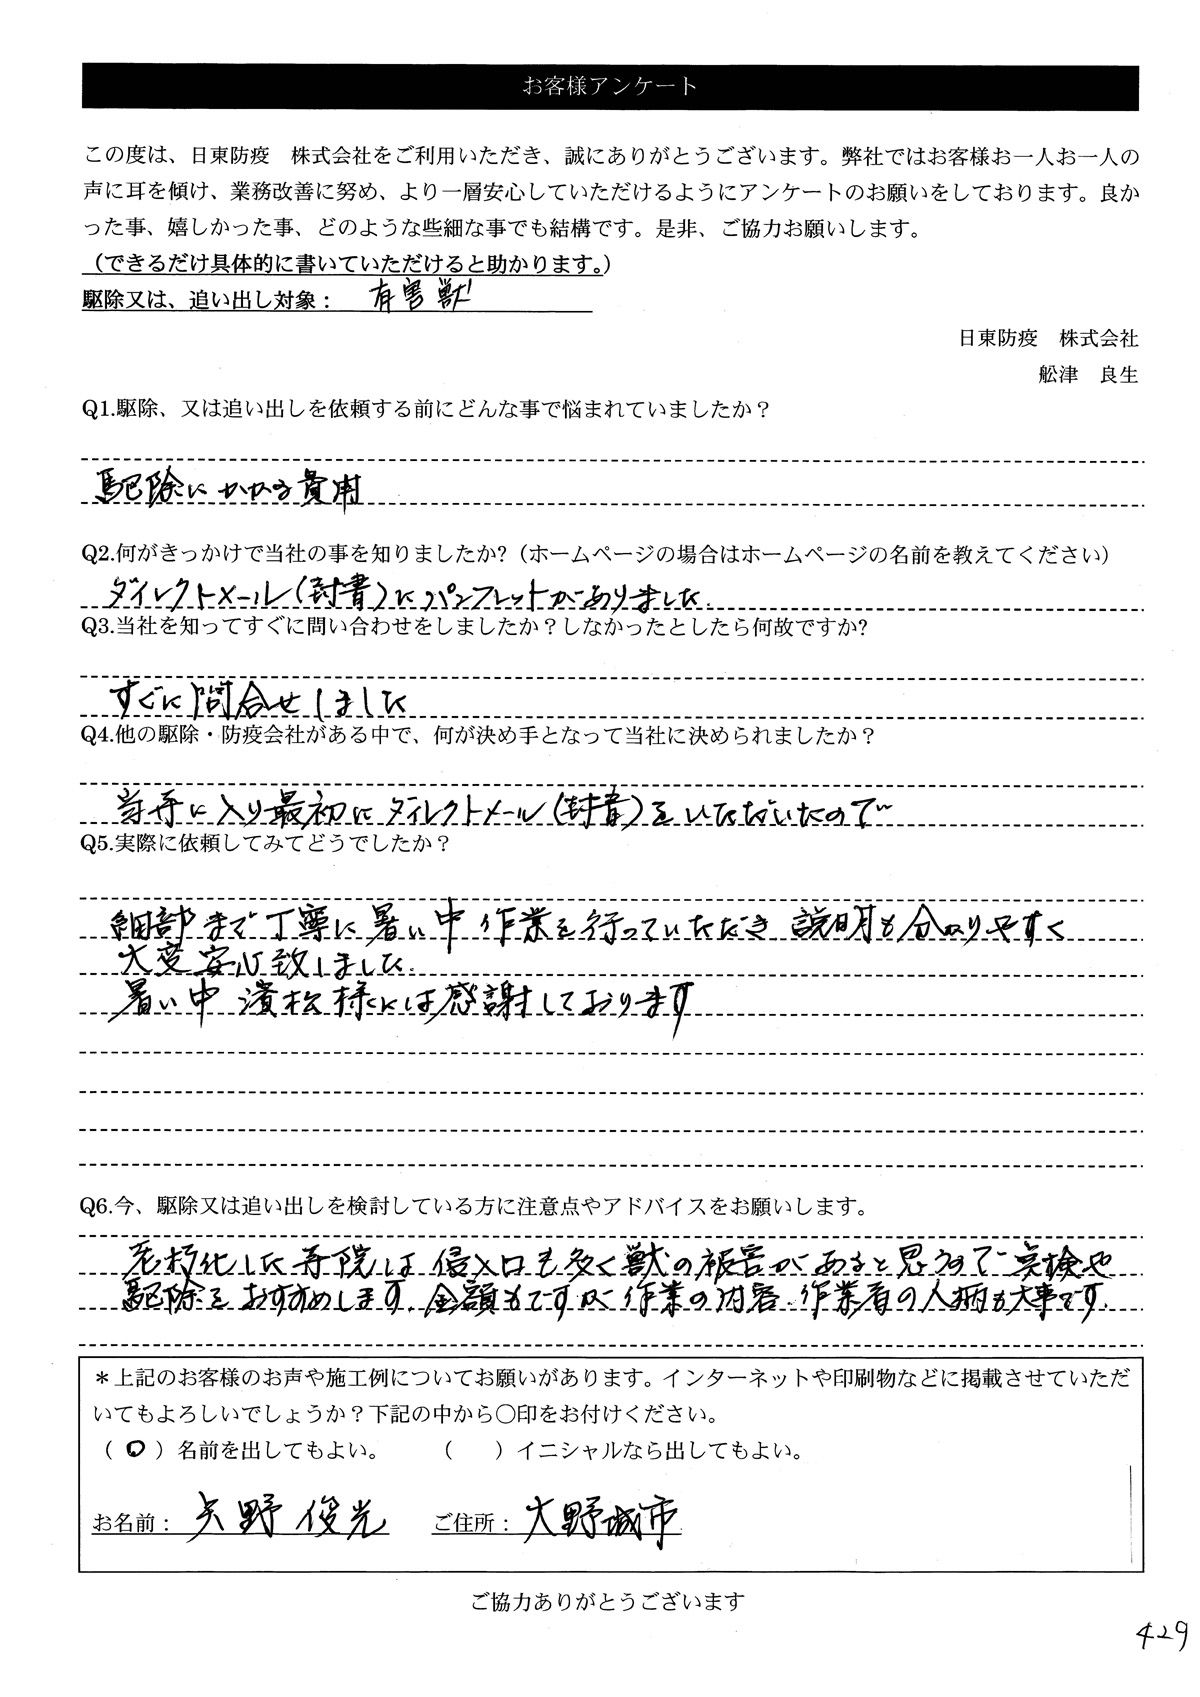 お客様アンケート
この度は、日東防疫　株式会社をご利用いただき、誠にありがとうございます。弊社ではお客様お一人お一人の
声に耳を傾け、業務改善に努め、より一層安心していただけるようにアンケートのお願いをしております。良か
った事、嬉しかった事、どのような些細な事でも結構です。是非、ご協力お願いします。
（できるだけ具体的に書いていただけると助かります。）
駆除又は、追い出し対象： 有害獣
日東防疫　株式会社
舩津　良生
Q1.駆除、又は追い出しを依頼する前にどんな事で悩まれていましたか？
駆除にかかる費用
Q2.何がきっかけで当社の事を知りましたか?（ホームページの場合はホームページの名前を教えてください）
ダイレクトメール(封書)にパンフレットがありました.
Q3.当社を知ってすぐに問い合わせをしましたか？しなかったとしたら何故ですか?
すぐに問合せしました
Q4.他の駆除・防疫会社がある中で、何が決め手となって当社に決められましたか？
当寺に入り最初にダイレクトメール(封書)をいただいたので
Q5.実際に依頼してみてどうでしたか？
細部まで丁寧に暑い中作業を行っていただき 説明も分かりやすく
大変安心致しました.
暑い中 濱松様には感謝しております
Q6.今、駆除又は追い出しを検討している方に注意点やアドバイスをお願いします。
老朽化した寺院は侵入口も多く獣の被害があると思うので点検や
駆除をおすすめします. 金額もですが作業の内容.作業者の人柄も大事です.
＊上記のお客様のお声や施工例についてお願いがあります。インターネットや印刷物などに掲載させていただ
いてもよろしいでしょうか？下記の中から○印をお付けください。
（ ○ ）名前を出してもよい。　　（　　）イニシャルなら出してもよい。
お名前： 矢野 俊光　ご住所： 大野城市
ご協力ありがとうございます
429